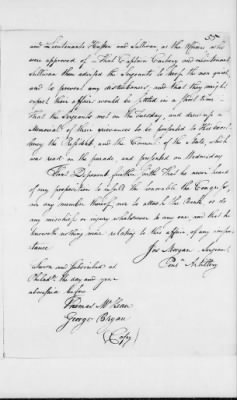 55
and Lieutenants Huston and Sullivan, as the Officers, who
were approved of — That Captain Carbery and Lieutenant
Sullivan then advised the Sergeants to keep the men quiet,
and to prevent any disturbances, and that they might
expect their affairs would be settled in a short time —
That the Sergeants met on the Tuesday, and drew up a
Memorial of their grievances to be presented to his Excel-
lency the President, and the Council of the State, which
was read on the parade, and presented on Wednesday
This Deponent further saith That he never heard
of any proposition to insult the honorable the Congress,
or any member thereof, nor to attack the Bank, or do
any mischief or injury whatsoever to any one, and that he
knoweth nothing more relating to this affair, of any impor-
tance
Jos Morgan Sergeant
Penna Artillery
Sworn and subscribed at
Philada the day and year
aforesaid before
Thomas McKean
George Bryan
(Copy)